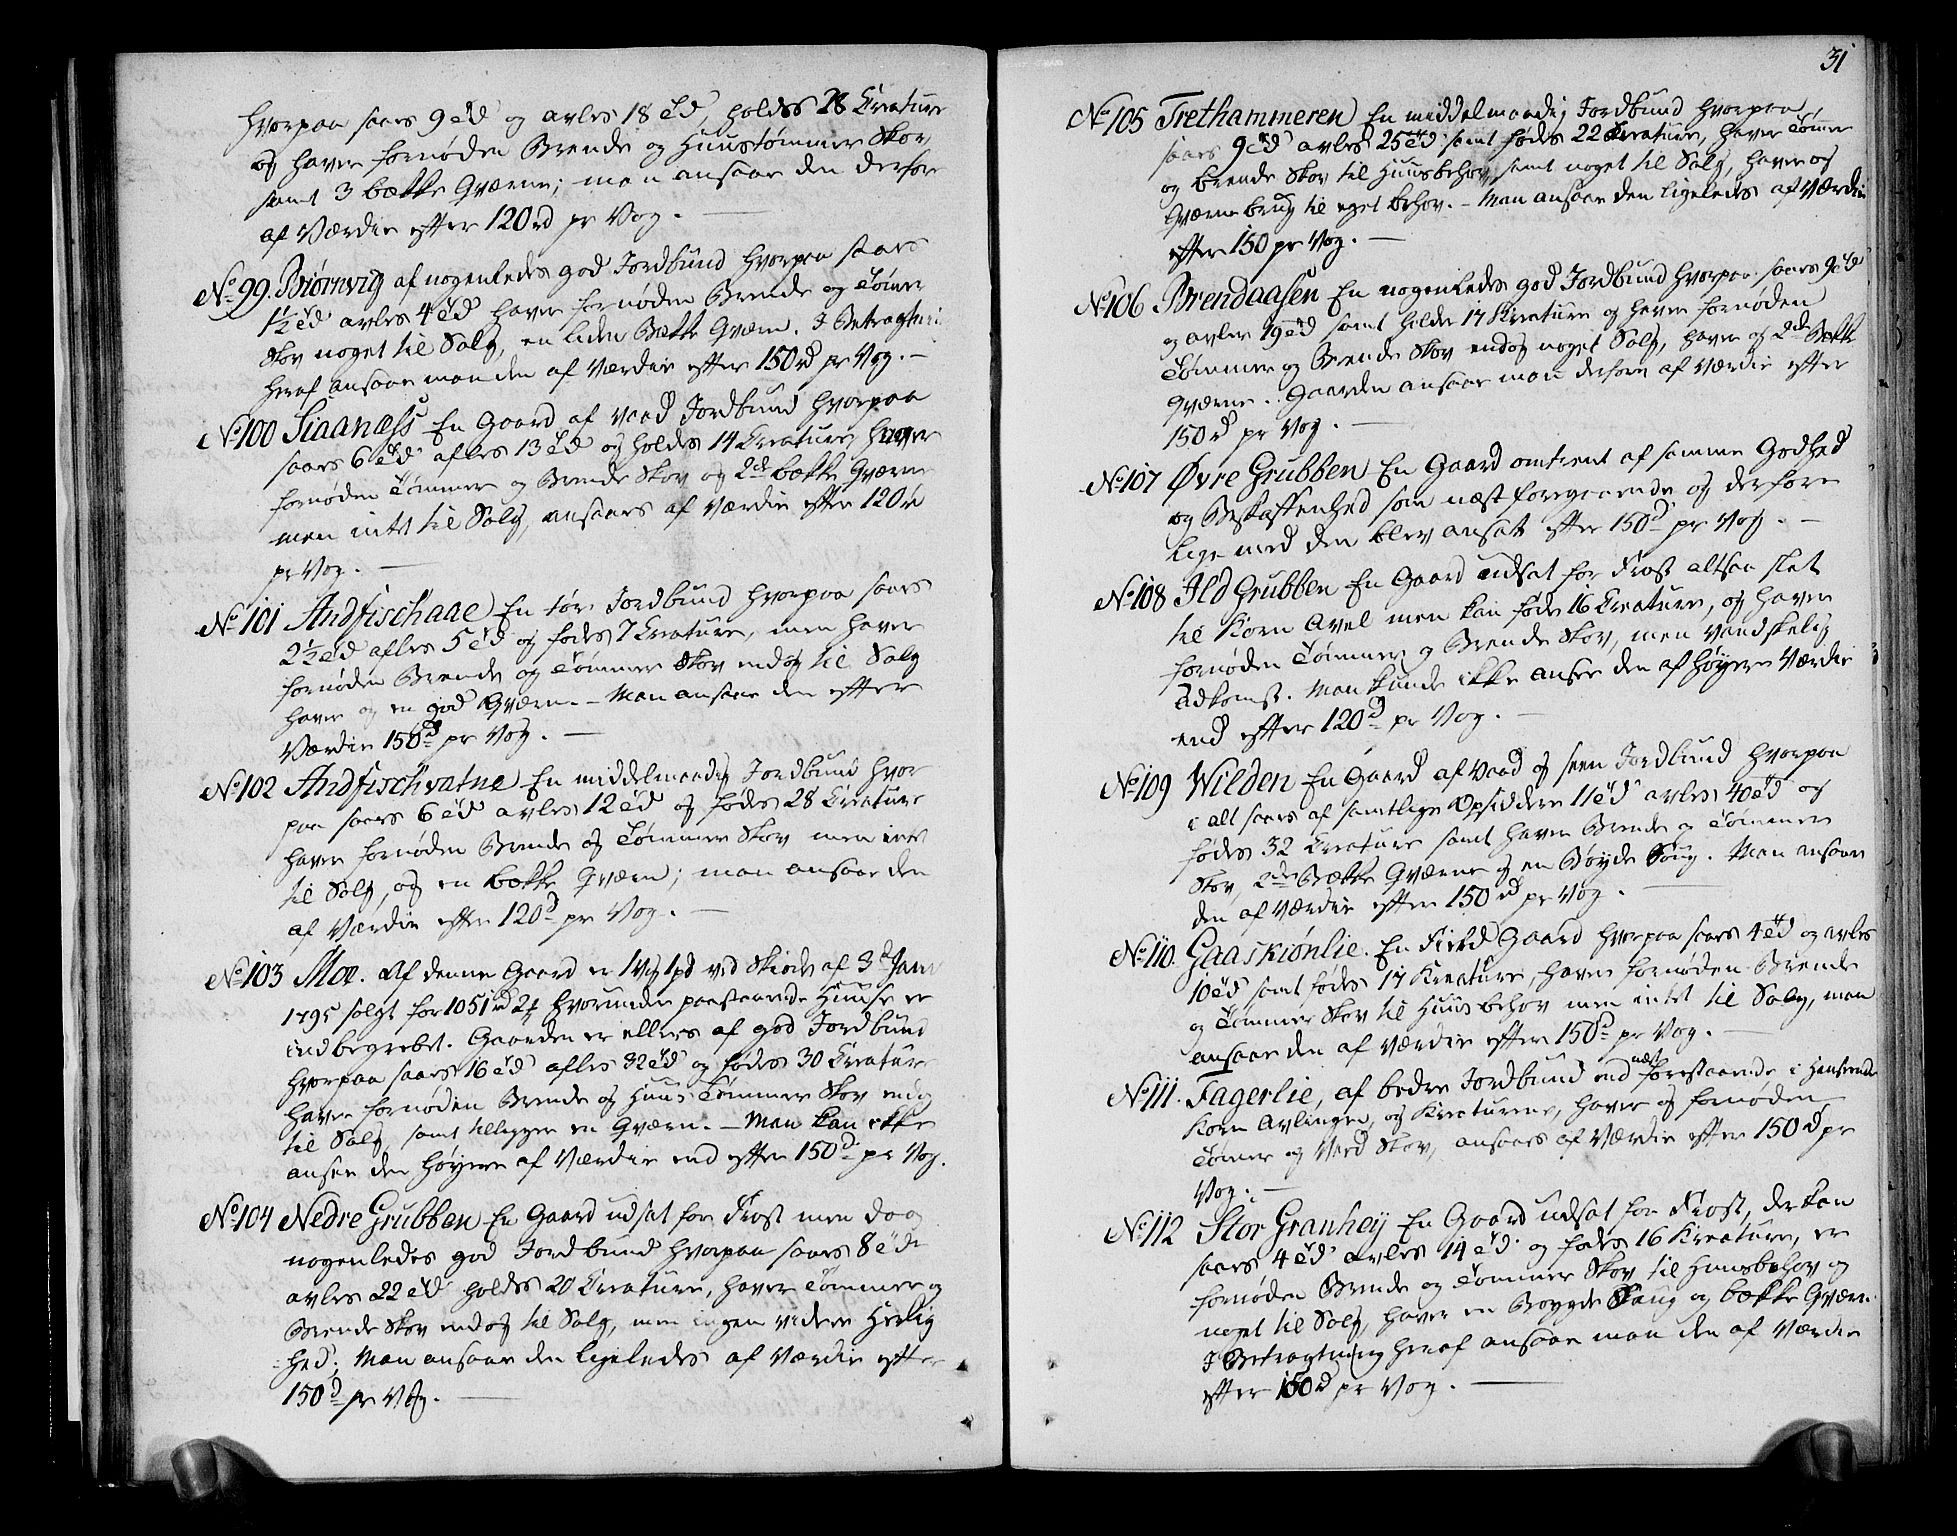 hvorpaa saaes 9 Td og avles 18 Td, holdes 28 Creature
og haver fornøden Brende og Huustømmer Skov,
samt 3 bække Qværne; man ansaae den derfore
af Værdie efter 120 rd pr Vog. —
No 99. Biørnvig af nogenledes god Jordbund hvorpaa saaes
1½ Td avles 4 Td haver fornøden Brende og Tømer
Skov noget til Salg, en liden Bække Qværn. I Betragtning
heraf ansaae man den af Værdie efter 150 rd pr Vog. —
No 100 Siaanæss En Gaard af vaad Jordbund hvorpaa
saaes 6 Td afles 13 Td og holdes 14 Creature, haver
fornøden Tømmer og Brende Skov og 2de bække Qværne
men intet til Salg, ansaaes af Værdie efter 120 rd
pr Vog. —
No 101 Andfischaae En tør Jordbund hvorpaa saaes
2½ Td afles 5 Td og fødes 7 Creature, men haver
fornøden Brende og Tømmer Skov endog til Salg
haver og en god Qværn. — Man ansaae den efter
Værdie 150 d pr Vog. —
No 102 Andfischvatne En middelmaadig Jordbund hvor
paa saaes 6 Td avles 12 Td og fødes 28 Creature
haver fornøden Brende og Tømmer Skov men intet
til Salg, og en bække Qværn; man ansaae den
af Værdie efter 120 d pr Vog. —
No 103 Moe. Af denne Gaard er 1 Vog 1 pd ved Skiøde af 3 d Janv
1795 solgt for 1051 rd 2 f hvorunder paastaaende Huuse er
indbegrebet. Gaarden er ellers af god Jordbund
hvorpaa saaes 16 Td afles 32 Td og fødes 30 Creature
haver fornøden Brende og Huus Tømmer Skov endog
til Salg, samt tilligger en Qværn. — Man kan ikke
ansee den høyere af Værdie end efter 150 d pr Vog.
No 104 Nedre Grubben En Gaard udsat for Frost men dog
nogenledes god Jordbund hvorpaa saaes 8 Td
avles 22 Td holdes 20 Creature, haver Tømmer og
Brende Skov endog til Salg, men ingen videre Herlig
hed; Man ansaae den ligeledes af Værdie efter
150 d pr Vog. —
31
No 105 Trethammeren En middelmaadig Jordbund hvorpaa
saaes 9 Td avles 25 Td samt fødes 22 Creature, haver Tømer
og brende Skov til Huusbehov, samt noget til Salg, haver og
Qværnebrug til eget behov. — Man ansaae den ligeledes af Værdie
efter 150 pr Vog. —
No 106 Brendaasen En nogenledes god Jordbund hvorpaa saaes 9 Td
og avler 19 Td samt holde 17 Kreature og haver fornøden
Tømmer og Brende Skov endog noget Salg, haver og 2de Bække
Qværne. Gaarden ansaae man derfore af Værdie efter
150 rd pr Vog. —
No 107 Øvre Grubben En Gaard omtrent af samme Godhed
og Beskaffenhed som næst foregaaende og derfore
lige med den blev ansat efter 150 d pr Vog. —
No 108 Ild Grubben En Gaard udsat for Frost altsaa slet
til Korn Avel men kan føde 16 Creature, og haver
fornøden Tømmer og Brende Skov, men vandskelig
Adkomst. Man kunde ikke ansee den af høyere Værdie
end efter 120 d pr Vog. —
No 109 Wilden En Gaard af vaad og seen Jordbund hvorpaa
i alt saaes af samtlige Opsiddere 11 Td avles 40 Td og
fødes 32 Creature samt haver Brende og Tømmer
Skov, 2de Bække Qværne og en Bøyde Saug. Man ansaae
den af Værdie efter 150 rd pr Vog. —
No 110. Gaaskiønlie. En Field Gaard hvorpaa saaes 4 Td og avles
10 Td samt fødes 17 Kreature, haver fornøden Brende
og Tømmer Skov til Huus behov men intet til Salg, man
ansaae den af Værdie efter 150 d pr Vog. —
No 111. Fagerlie, af bedre Jordbund end næst forestaaende i Henseende
Korn Avlingen, og Kreaturene, haver og fornøden
Tømer og Ved Skov, ansaaes af Værdie efter 150 d pr
Vog. —
No 112 Stor Granhey En Gaard udsat for Frost, der kan
saaes 4 Td avles 14 Td og fødes 16 Kreature, er
fornøden Brende og Tømmer Skov til Huusbehov og
noget til Salg, haver en Boygde Saug og bække Qværn.
I Betragtning heraf ansaae man den af Værdie
efter 150 d pr Vog. —